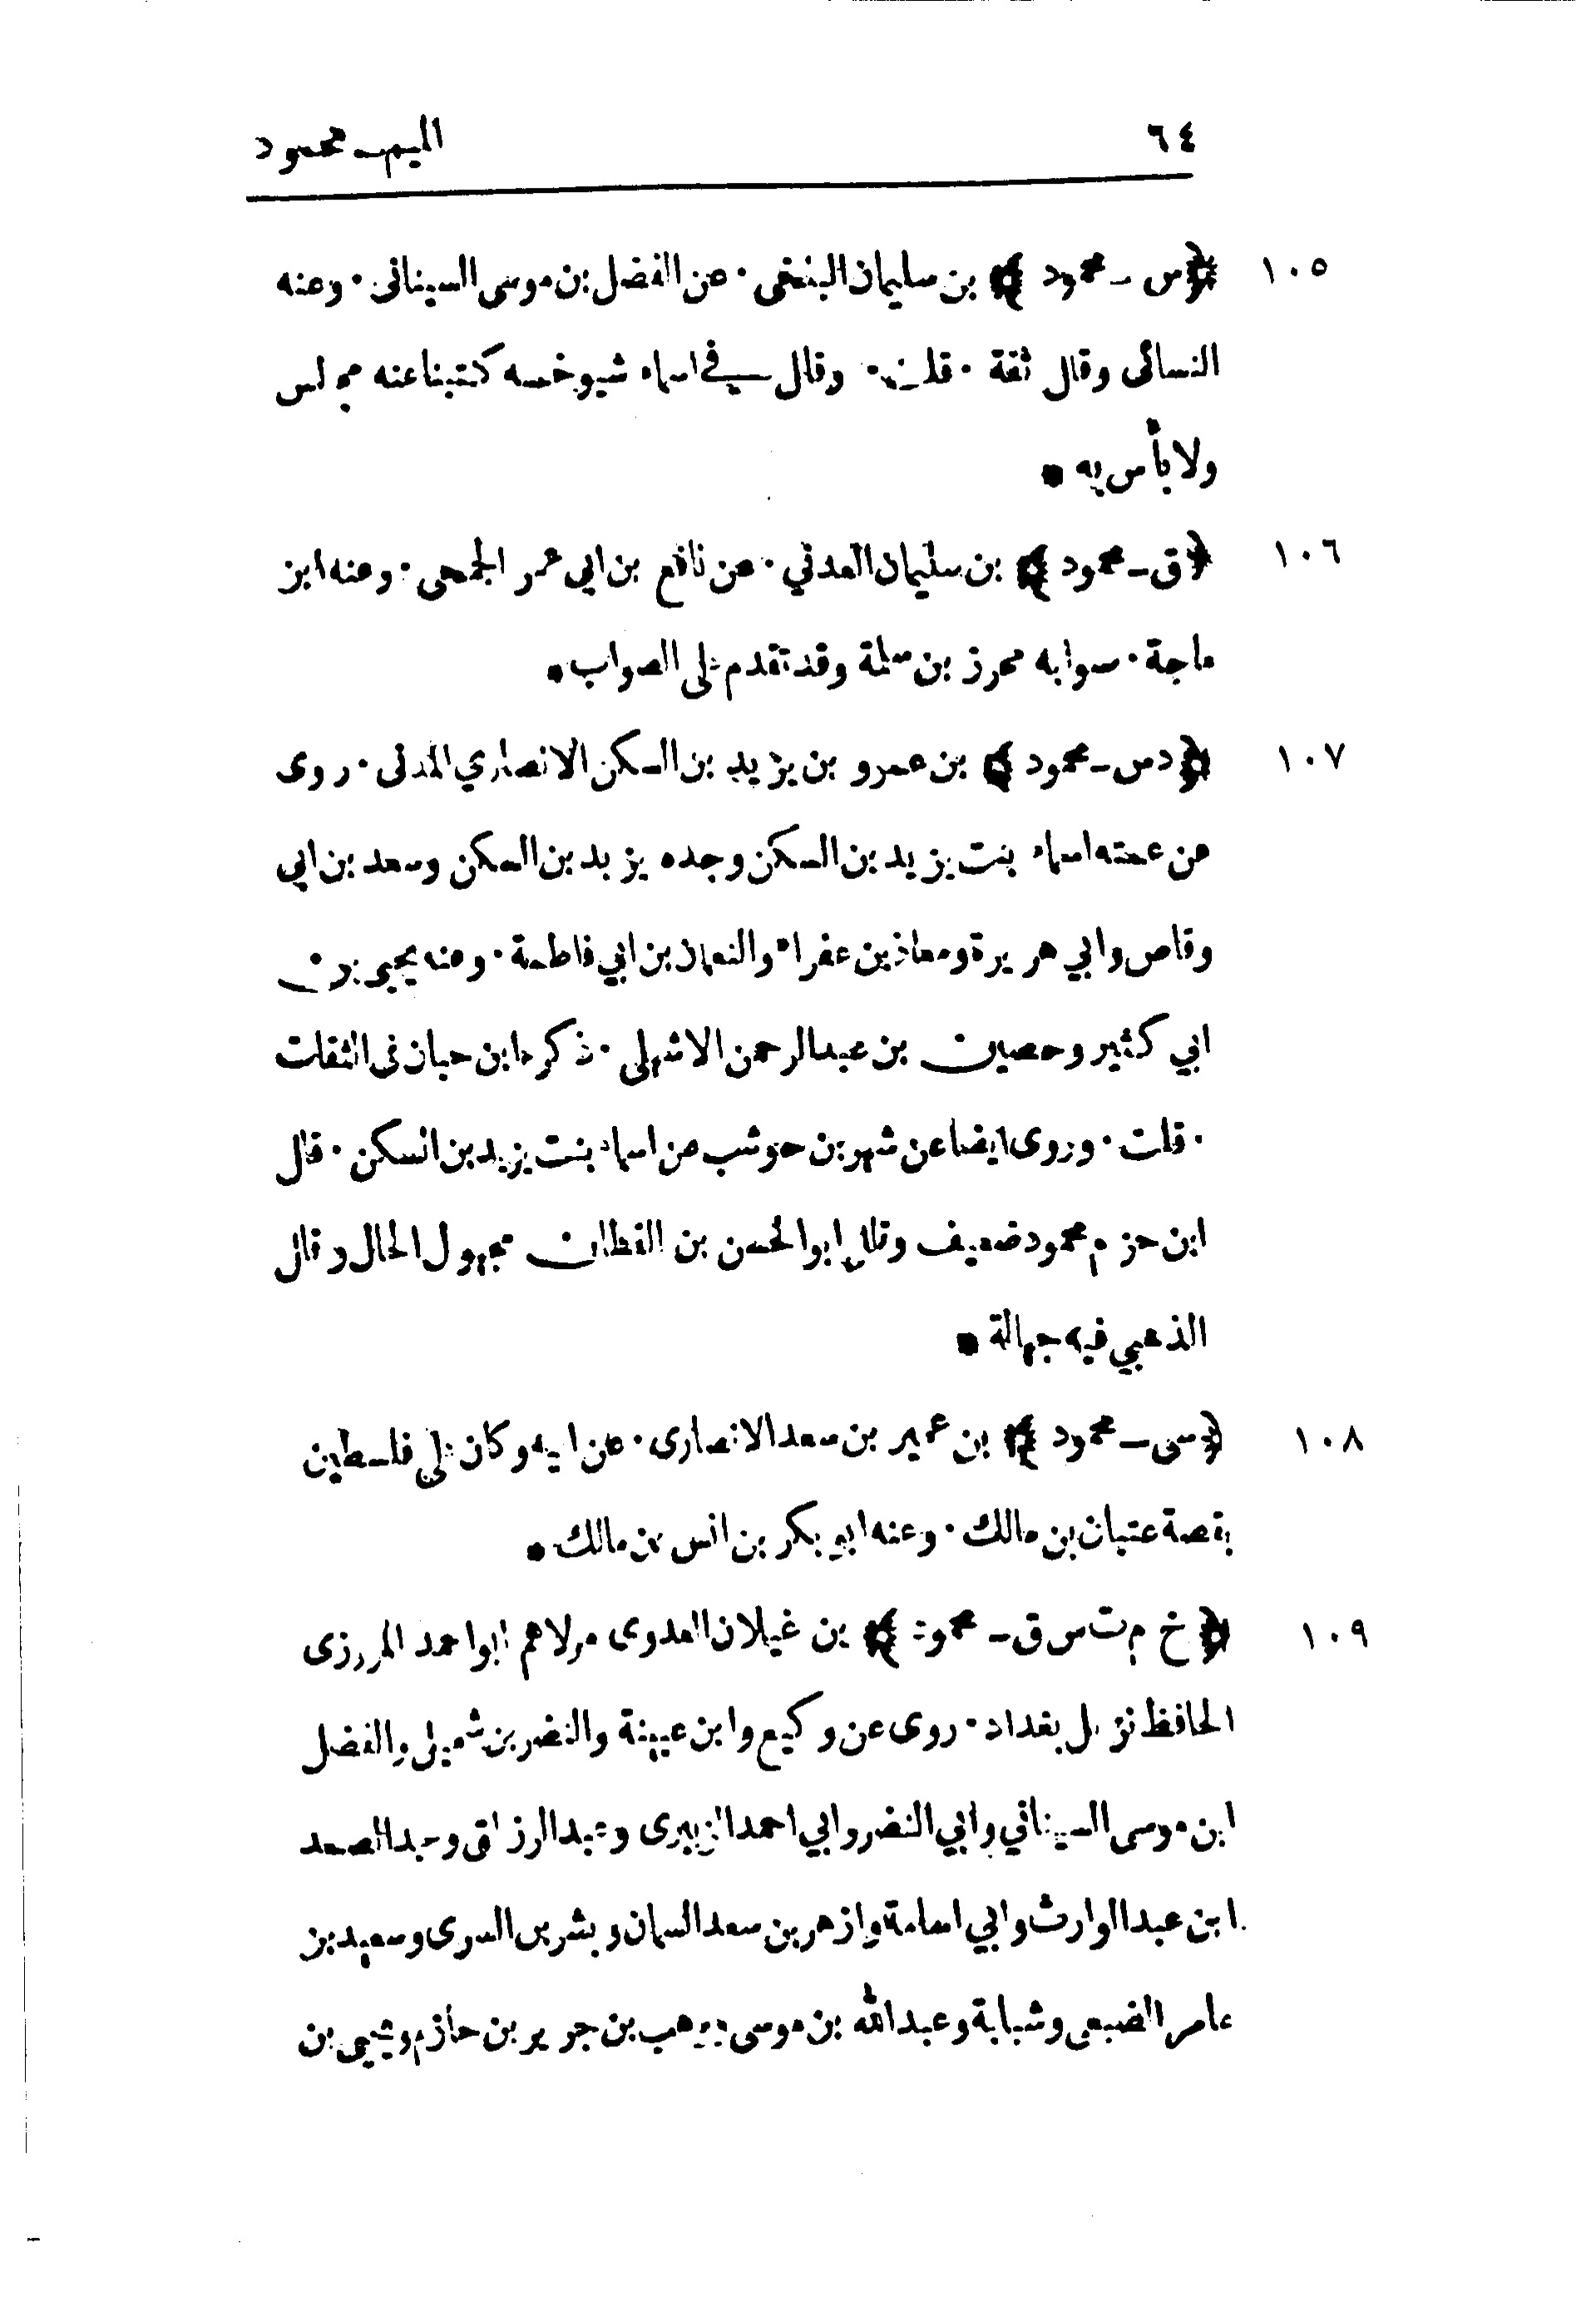 ٦٤ الميم ـ محمود
١٠٥ ﴿س ـ محمود﴾ بن سليمان البلخى · عن الفضل بن موسى السينانى · وعنه
النسائى وقال ثقة · قلت · وقال فى اسماء شيوخه كتبنا عنه مجلس
ولا بأس به *
١٠٦ ﴿ق ـ محمود﴾ بن سليمان العدني · عن نافع بن ابي عمر الجمحى · وعنه ابن
ماجة · صوابه محرز بن سلمة وقد تقدم على الصواب *
١٠٧ ﴿دس ـ محمود﴾ بن عمرو بن يزيد بن السكن الانصاري المدنى · روى
عن عمته اسماء بنت يزيد بن السكن وجده يزيد بن السكن وسعد بن ابي
وقاص وابي هريرة ومعاذ بن عفراء والنعمان بن ابي فاطمة · وعنه يحيى بن
ابي كثير وحصين بن عبد الرحمن الاشهلى · ذكره ابن حبان فى الثقات
· قلت · وروى ايضا عن شهر بن حوشب عن اسماء بنت يزيد بن السكن · قال
ابن حزم محمود ضعيف وقال ابو الحسن بن القطان مجهول الحال وقال
الذهبي فيه جهالة *
١٠٨ ﴿سى ـ محمود﴾ بن عمير بن سعد الانصارى · عن ابيه وكان على فلسطين
بقصة عتبان بن مالك · وعنه ابو بكر بن انس بن مالك *
١٠٩ ﴿خ م ت س ق ـ محمود﴾ بن غيلان العدوى مولاهم ابو احمد المروزى
الحافظ نزيل بغداد · روى عن وكيع وابن عيينة والنضر بن شميل والفضل
ابن موسى السيناني وابي النضر وابي احمد الزبيرى وعبد الرزاق وعبد الصمد
ابن عبد الوارث وابي اسامة وازهر بن سعد السمان وبشر بن السرى وسعيد بن
عامر الضبعى وشبابة وعبد الله بن موسى ووهب بن جرير بن حازم ويحيى بن